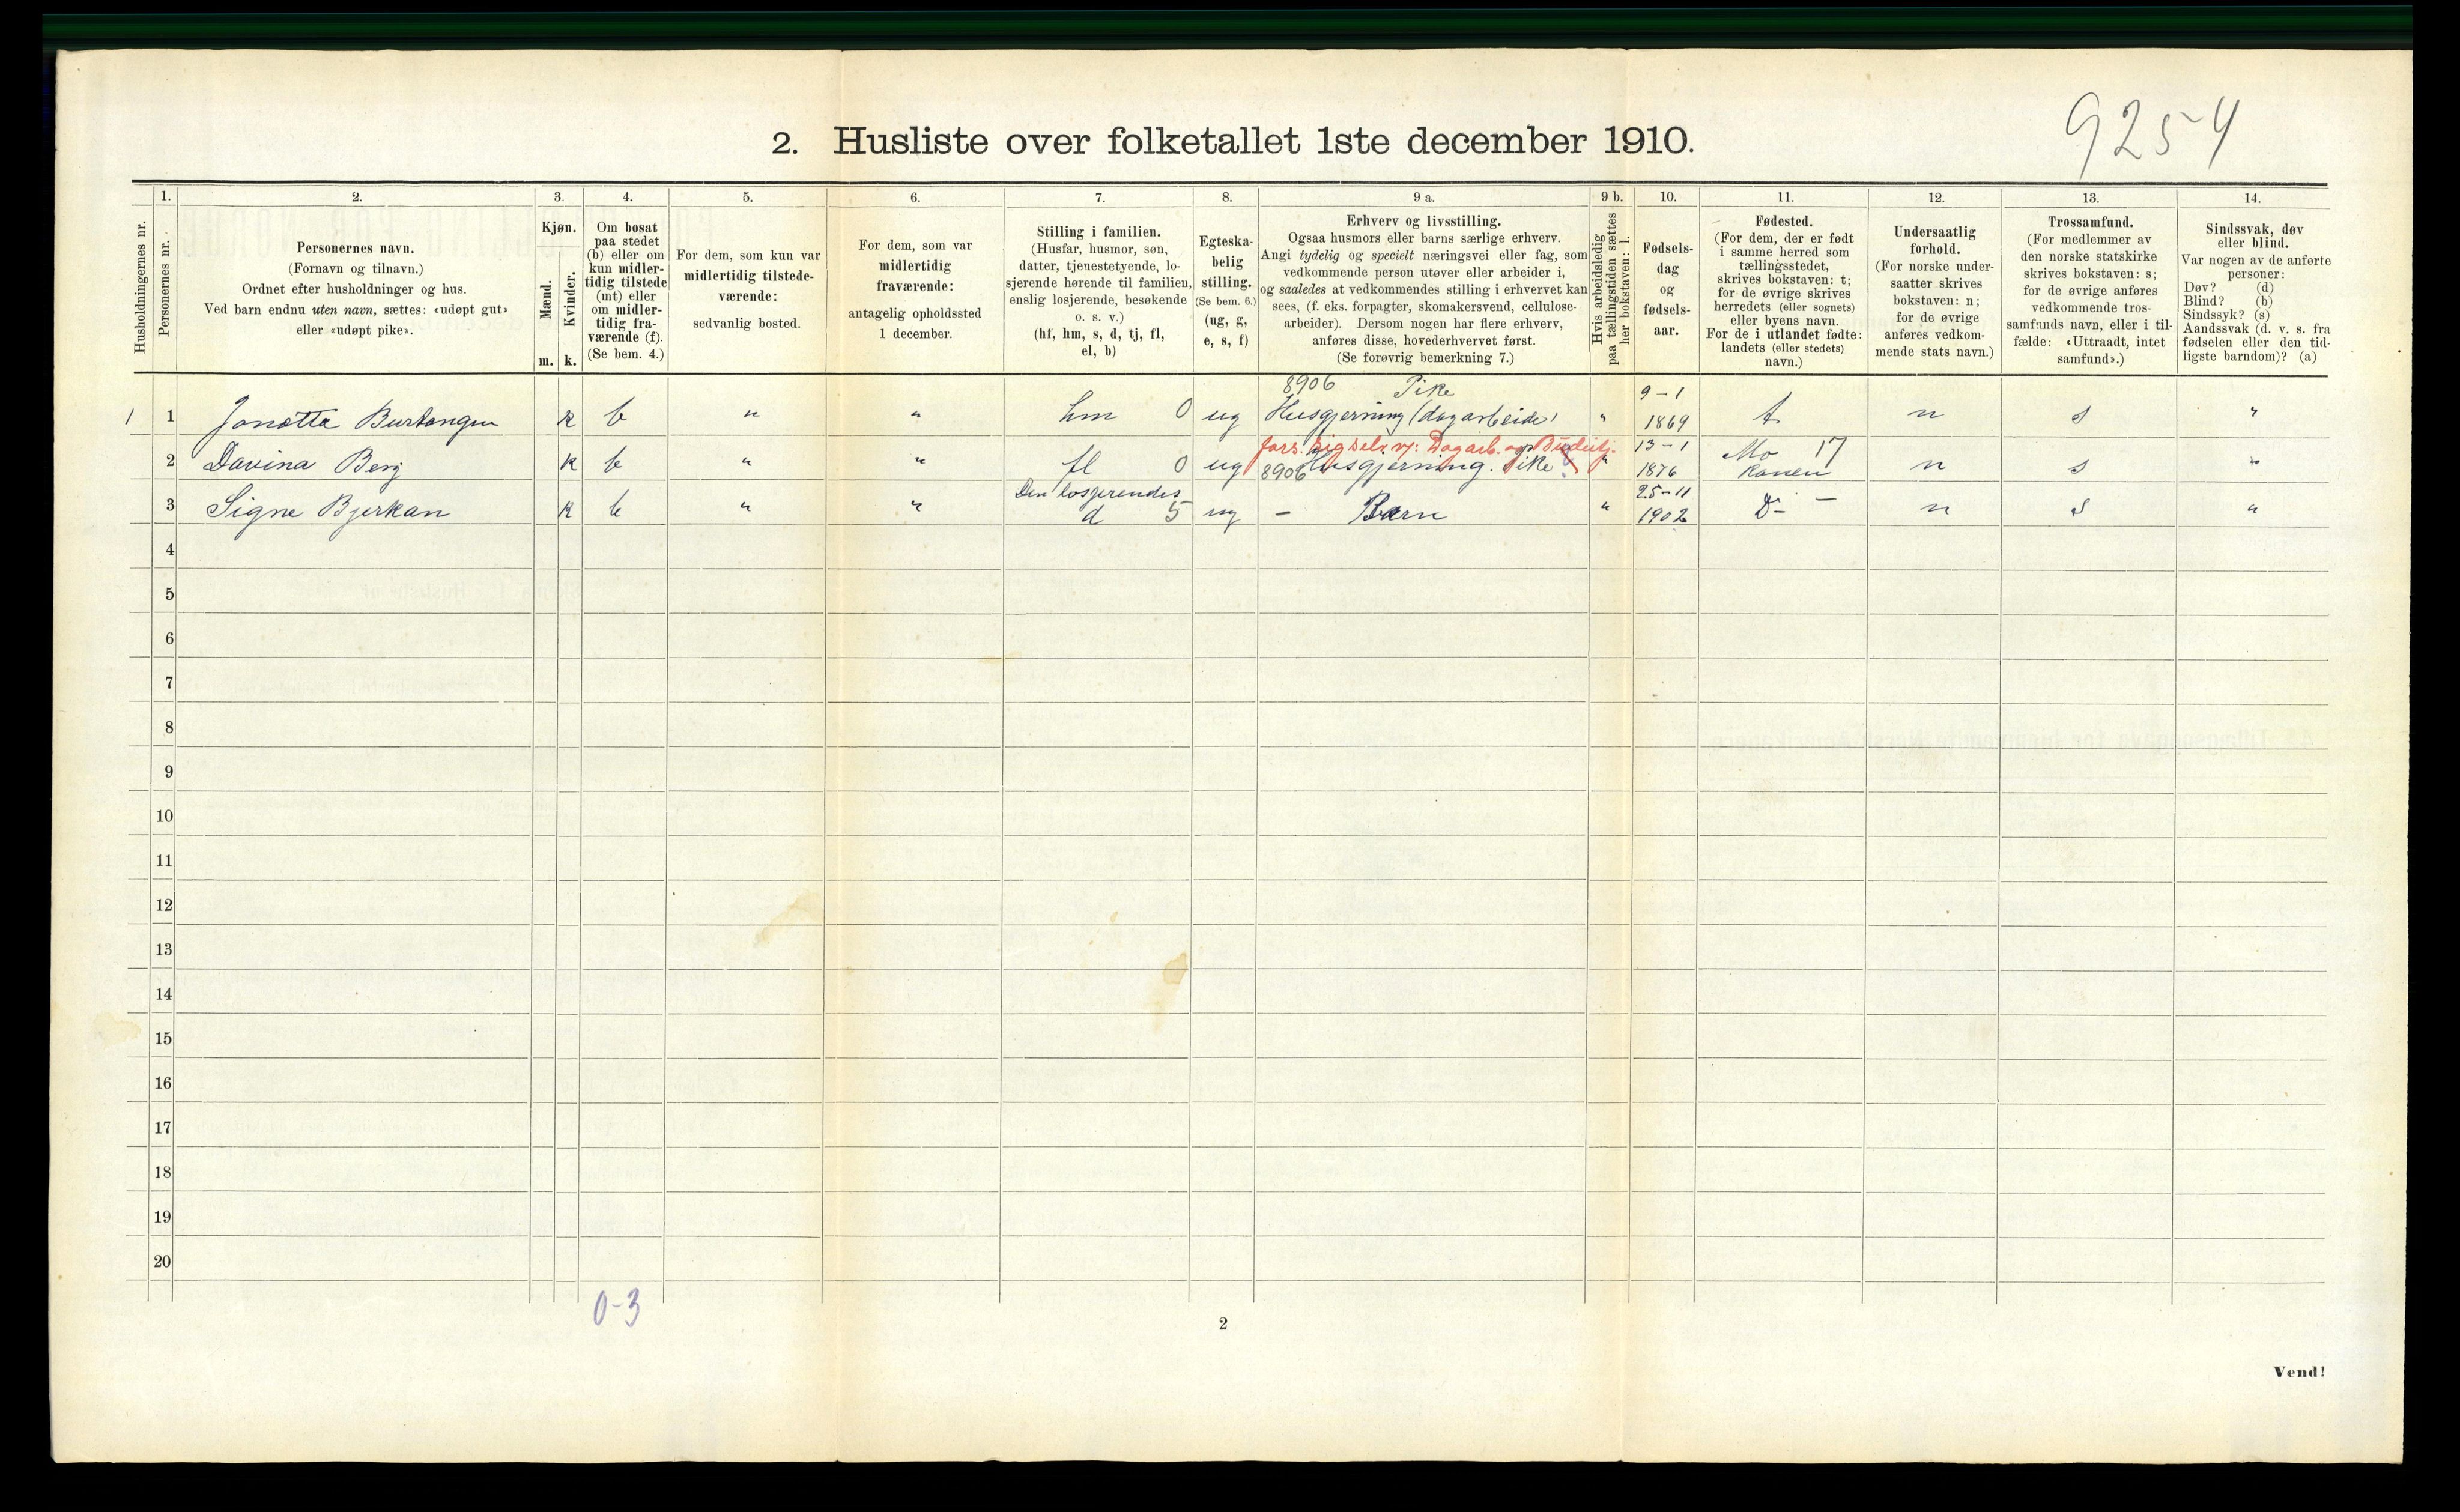 9254
2. Husliste over folketallet 1ste december 1910.
Husholdningernes nr.
1.
Personernes nr.
2.
Personernes navn.
(Fornavn og tilnavn.)
Ordnet efter husholdninger og hus.
Ved barn endnu uten navn, sættes: «udøpt gut»
eller «udøpt pike».
3.
Kjøn.
Mænd.
Kvinder.
m. k.
4.
Om bosat
paa stedet
(b) eller om
kun midler-
tidig tilstede
(mt) eller
om midler-
tidig fra-
værende (f).
(Se bem. 4.)
5.
For dem, som kun var
midlertidig tilstede-
værende:
sedvanlig bosted.
6.
For dem, som var
midlertidig
fraværende:
antagelig opholdssted
1 december.
7.
Stilling i familien.
(Husfar, husmor, søn,
datter, tjenestetyende, lo-
sjerende hørende til familien,
enslig losjerende, besøkende
o. s. v.)
(hf, hm, s, d, tj, fl,
el, b)
8.
Egteska-
belig
stilling.
(Se bem. 6.)
(ug, g,
e, s, f)
9 a.
Erhverv og livsstilling.
Ogsaa husmors eller barns særlige erhverv.
Angi tydelig og specielt næringsvei eller fag, som
vedkommende person utøver eller arbeider i,
og saaledes at vedkommendes stilling i erhvervet kan
sees, (f. eks. forpagter, skomakersvend, cellulose-
arbeider). Dersom nogen har flere erhverv,
anføres disse, hovederhvervet først.
(Se forøvrig bemerkning 7.)
9 b.
Hvis arbeidsledig
paa tællingstiden sættes
her bokstaven: l.
10.
Fødsels-
dag
og
fødsels-
aar.
11.
Fødested.
(For dem, der er født
i samme herred som
tællingsstedet,
skrives bokstaven: t;
for de øvrige skrives
herredets (eller sognets)
eller byens navn.
For de i utlandet fødte:
landets (eller stedets)
navn.)
12.
Undersaatlig
forhold.
(For norske under-
saatter skrives
bokstaven: n;
for de øvrige
anføres vedkom-
mende stats navn.)
13.
Trossamfund.
(For medlemmer av
den norske statskirke
skrives bokstaven: s;
for de øvrige anføres
vedkommende tros-
samfunds navn, eller i til-
fælde: «Uttraadt, intet
samfund».)
14.
Sindssvak, døv
eller blind.
Var nogen av de anførte
personer:
Døv? (d)
Blind? (b)
Sindssyk? (s)
Aandssvak (d. v. s. fra
fødselen eller den tid-
ligste barndom)? (a)
8906 Pike 9-1
1 1 k b " " hm 0 ug Husgjerning (dagarbeide) " 1869 t n s "
fors. sig selv v: Dagarb. og 13-1 Mo 17
2 Davina Berg k b " " fl 0 ug 8906 Husgjerning. Pike " 1876 n s "
Den losjerendes 25-11
3 Signe Bjerkan k b " " d 5 ug - Barn " 1902 D- - n s "
4
5
6
7
8
9
10
11
12
13
14
15
16
17
18
19
20
0-3
2
Vend!